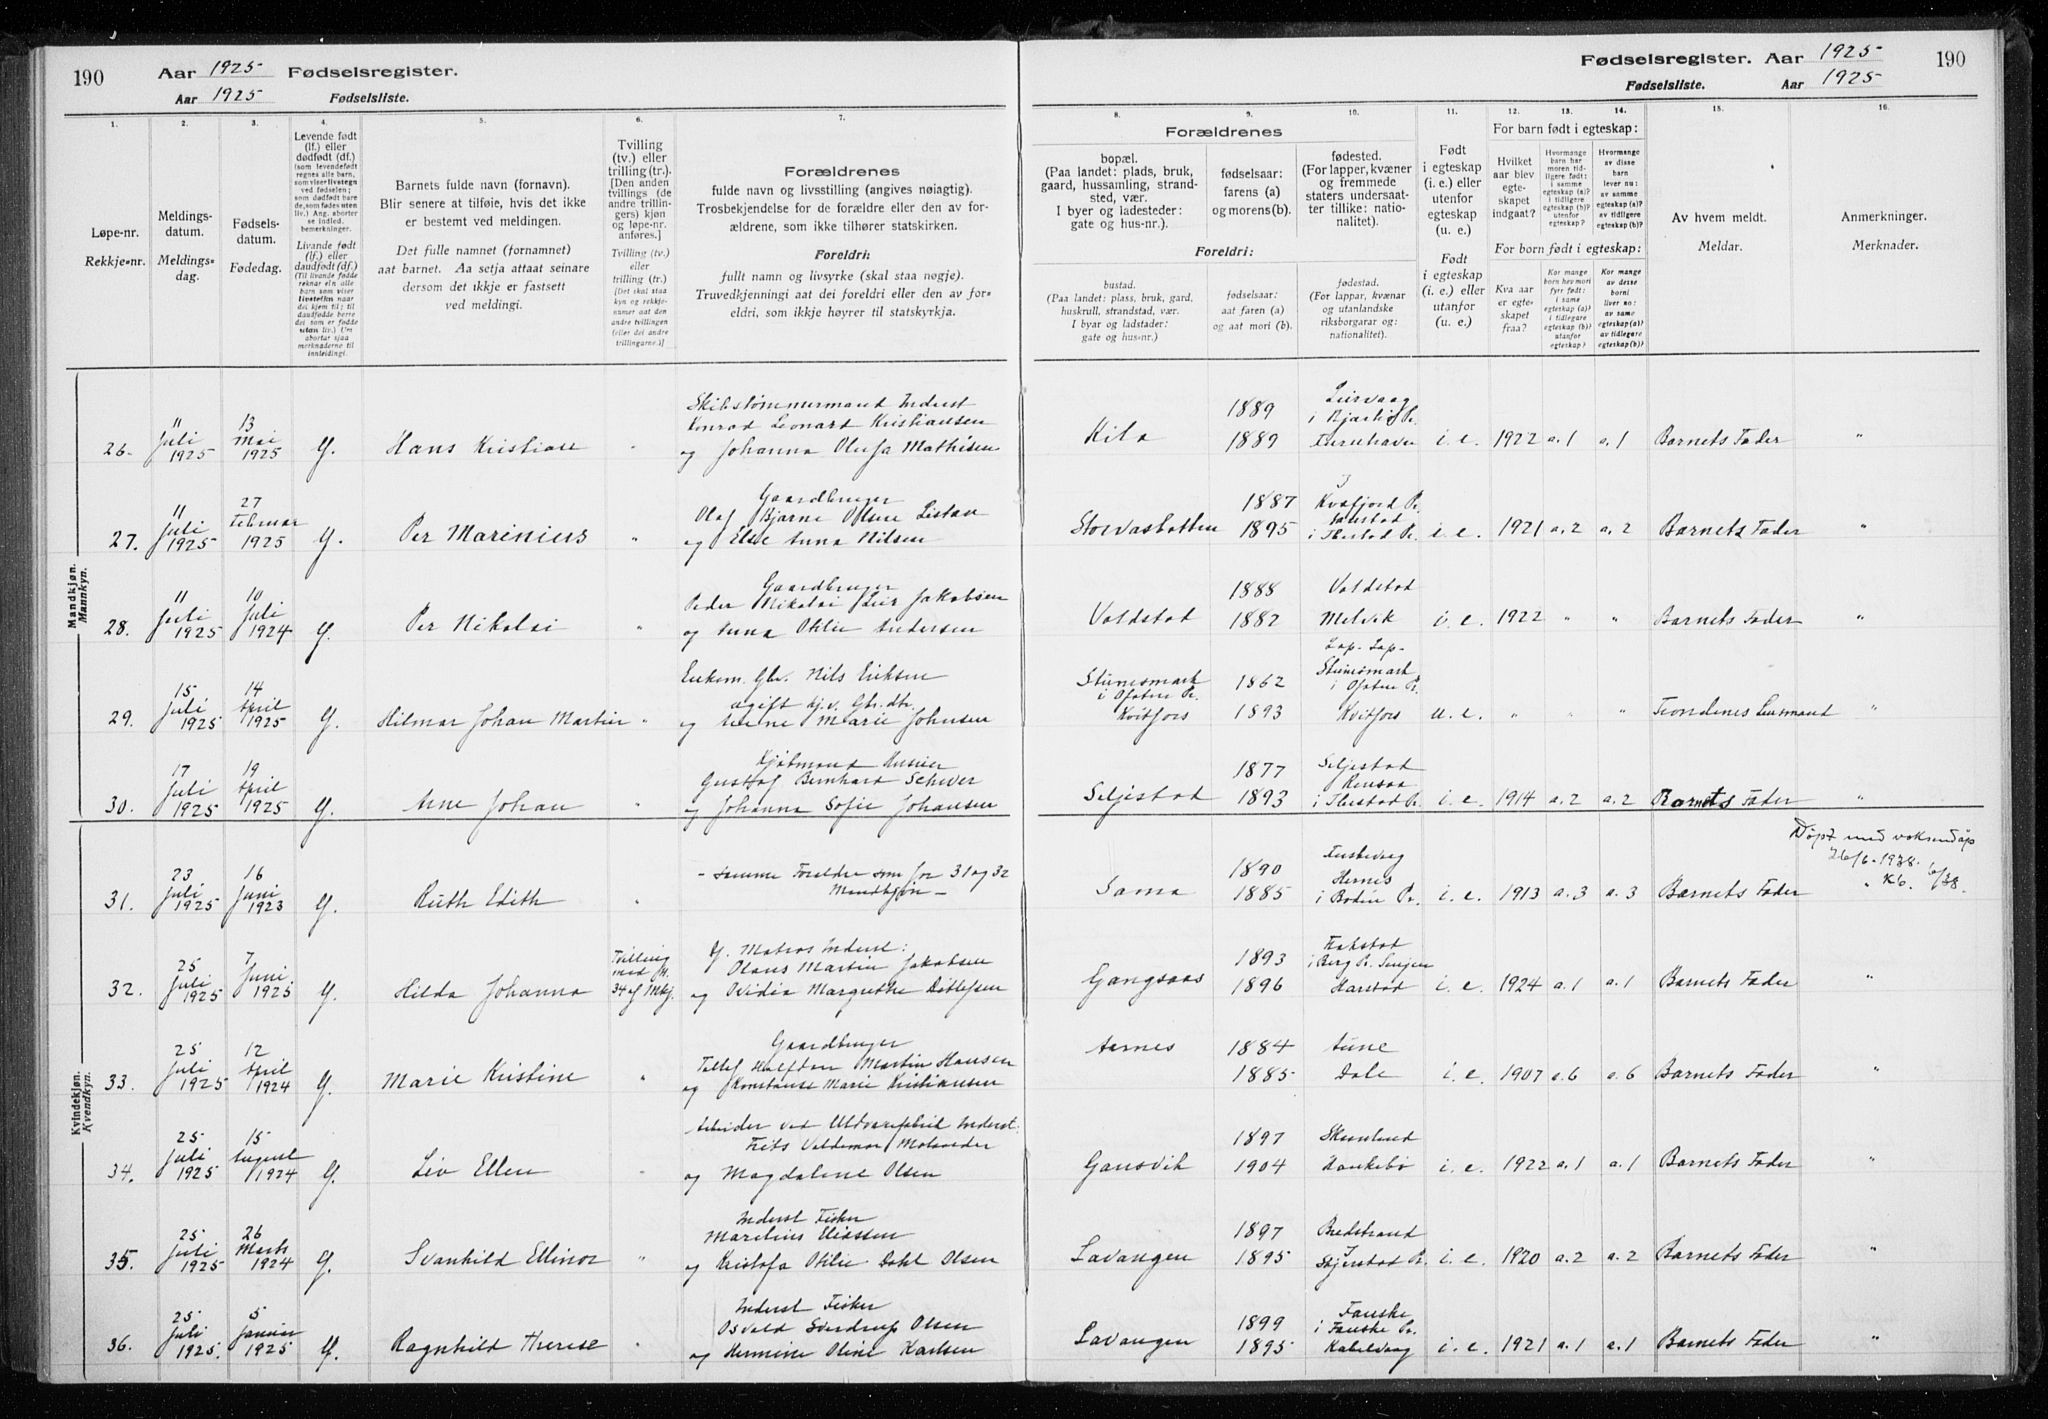 190
Aar 1925 Fødselsregister.
Aar 1925 Fødselsliste.
Fødselsregister. Aar 1925
Fødselsliste. Aar 1925
190
1. 2. 3. 4. 5. 6. 7.
Løpe-nr.
Rekkje-nr.
Meldings-
datum.
Meldings-
dag.
Fødsels-
datum.
Fødedag.
Levende født
(lf.) eller
dødfødt (df.)
Livande født
(lf.) eller
daudfødt (df.)
Barnets fulde navn (fornavn).
Blir senere at tilføie, hvis det ikke
er bestemt ved meldingen.
Det fulle namnet (fornamnet)
aat barnet. Aa setja attaat seinare
dersom det ikkje er fastsett
ved meldingi.
Tvilling
(tv.) eller
trilling (tr.).
[Den anden
tvillings (de
andre trillin-
gers) kjøn
og løpe-nr.
anføres.]
Tvilling (tv.)
eller
trilling (tr.)
[Det skal staa
kyn og rekkje-
numer aat den
andre tvillingen
(eller dei andre
trillingarne.)]
Forældrenes
fulde navn og livsstilling (angives nøiagtig).
Trosbekjendelse for de forældre eller den av for-
ældrene, som ikke tilhører statskirken.
Foreldri:
fullt namn og livsyrke (skal staa nøgje).
Truvedkjenningi aat dei foreldri eller den av for-
eldri, som ikkje høyrer til statskyrkja.
8. 9. 10. 11. 12. 13. 14. 15. 16.
Forældrenes
bopæl.
(Paa landet: plads, bruk,
gaard, hussamling, strand-
sted, vær.
I byer og ladesteder:
gate og hus-nr.).
fødselsaar:
farens (a)
og morens (b).
fødested.
(For lapper, kvæner
og fremmede
staters undersaat-
ter tillike: natio-
nalitet).
Foreldri:
bustad.
(Paa landet: plass, bruk, gard,
huskrull, strandstad, vær.
I byar og ladstader:
gate og hus-nr.)
fødselsaar:
aat faren (a)
og aat mori (b).
fødestad.
(For lappar, kvænar
og utanlandske
riksborgarar og:
nationalitet).
Født
i egteskap
(i. e.) eller
utenfor
egteskap
(u. e.)
Født
i egteskap
(i. e.) eller
utanfor
(u. e.)
For barn født i egteskap:
Hvilket
aar blev
egte-
skapet
indgaat?
For born født i egteskap:
Kva aar
er egte-
skapet
fraa?
Av hvem meldt.
Meldar.
Anmerkninger.
Merknader.
Mandkjøn.
Mannkyn.
26. 11 Juli 1925 13 Mai 1925 lf. Hans Kristian " Skibstømmermand Inderst Konrad Leonard Kristiansen og Johanna Olufa Mathisen Kila 1889 1889 i. e. 1922 a. 1 a. 1 Barnets Fader "
27. 11 Juli 1925 27 Februar 1925 lf. Per Marinius " Gaardbruger Olaf Bjarne Olsen og Else Anna Nilsen Storvasbotten 1887 1895 Kvæfjord Pr. i. e. 1921 a. 2 a. 2 Barnets Fader "
28. 11 Juli 1925 10 Juli 1924 lf. Per Nikolai " Gaardbruger Peder Nikolai Jakobsen og Anna Otilie Andersen Voldstad 1888 1882 Voldstad Melvik i. e. 1922 " " Barnets Fader "
29. 15 Juli 1925 14 April 1925 lf. Hilmar Johan Martin " Enkem. Gbr. Nils Eriksen og Marie Johnsen i Ofoten Pr. Kvitfors 1862 1893 Lap-Lap- i Ofoten Pr. Kvitfors u. e. " " " Trondenes Lensmand "
30. 17 Juli 1925 19 April 1925 lf. Arne Johan " Gustaf Bernhard og Johanna Sofie Johansen Seljestad 1877 1893 Seljestad Rensaa i Ibestad Pr. i. e. 1914 a. 2 a. 2 Barnets Fader "
Kvindekjøn.
Kvendkyn.
31. 23 Juli 1925 16 Juni 1923 lf. Ruth Edith " - samme Forældre som for 31 og 32 Mandkjøn - Sama 1890 1885 Hernes i Bodin Pr. i. e. 1913 a. 3 a. 3 Barnets Fader Døpt med voksendåp 26/6-1938. Kb. 6/38.
32. 25 Juli 1925 7 Juni 1925 lf. Hilda Johanna Tvilling med Nr. 34 af Mkj. Matros Inderst: Olaus Martin Jakobsen og Ovidia Margrethe Detlefsen Gangsaas 1893 1896 i Berg Pr. Senjen Harstad i. e. 1924 a. 1 a. 1 Barnets Fader "
33. 25 Juli 1925 12 April 1924 lf. Marie Kristine " Gaardbruger Halfdan Martin Hansen og Konstanse Marie Kristiansen Aarnes 1884 1885 Aune Dale i. e. 1907 a. 6 a. 6 Barnets Fader "
34. 25 Juli 1925 15 August 1924 lf. Liv Ellen " Arbeider ved Uldvarefabrik Inderst: Valdemar og Magdalene Olsen Gansvik 1897 1904 i. e. 1922 a. 1 a. 1 Barnets Fader
35. 25 Juli 1925 26 Marts 1924 lf. Svanhild Ellinor " Inderst Fisker Marelius Eliassen og Kristofa Otilie Dahl Olsen Lavangen 1897 1895 Bredstrand i. e. 1920 a. 2 a. 2 Barnets Fader "
36. 25 Juli 1925. 5 Januar 1925 lf. Ragnhild Therese " Inderst Fisker Osvald Sverdrup Olsen og Hermine Oline Karlsen Lavangen 1899 1895 Fauske i Fauske Pr. Kabelvaag i. e. 1921 a. 1 a. 1 Barnets Fader "